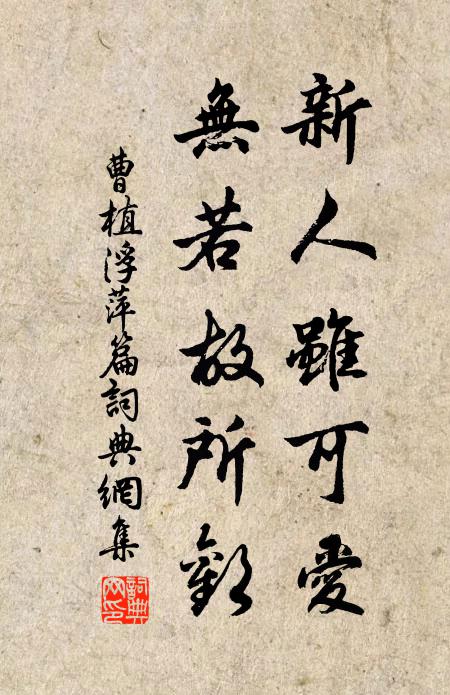 新人雖可愛
無若故所歡
曹植浮萍篇詞典網集
詞典網印